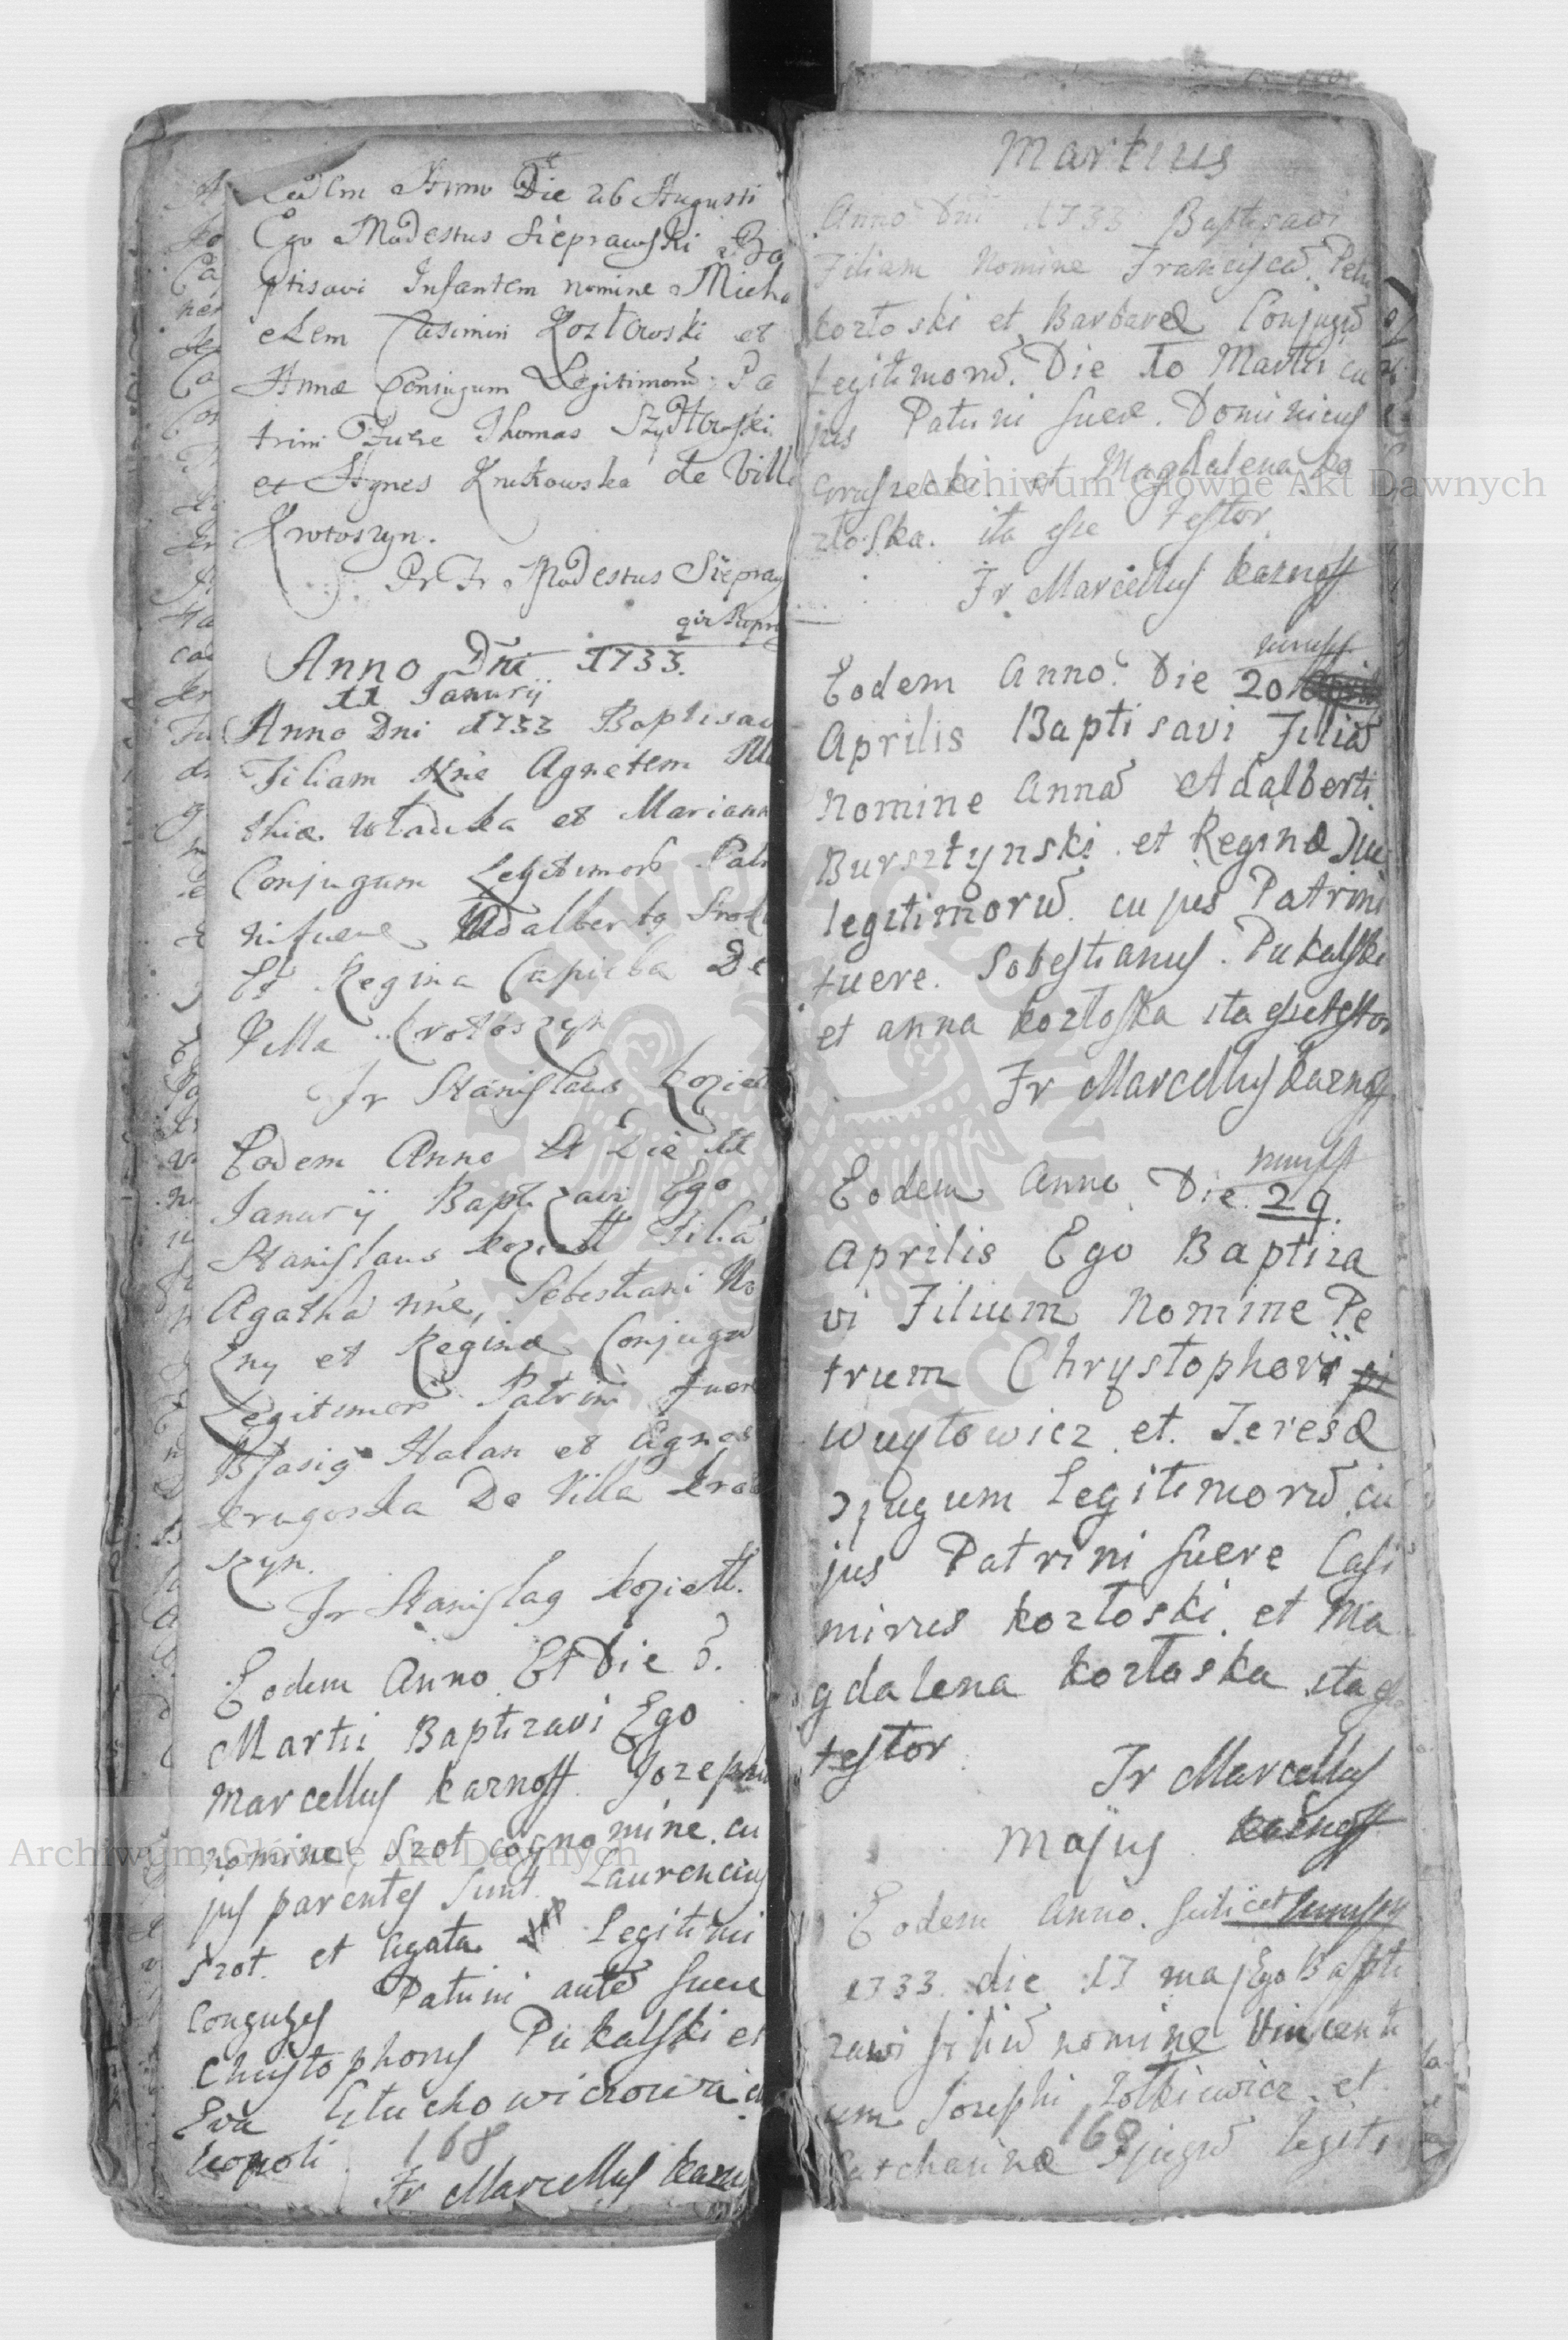 Eodem Anno Die 26 Augusti
Ego Modestus Sieprawski Ba
ptisavi Infantem nomine Micha
elem Casimiri Kozłowski et
Annæ Coniugum Legitimorũ Pa
trini Fuere Thomas Szydłowski
et Agnes Krukowska de Villa
Krotoszyn.
Pr Fr Modestus Siepraw
qui supra
Anno Dni 1733.
11 Janurij
Anno Dni 1733 Baptisavi
Filiam Nne Agnetem Ma
thiæ et Mariann
Conjugum Legitimorũ Patri
ni fuere Adalbertq
Et Regina Capicka De
Villa Krotoszyn
Fr Stanislaus koziett
Eodem Anno Et Die
Janurij Baptizavi Ego
Stanislaus koziett Filiã
Agathã nne, Sebestiani
et Reginæ Conjugũ
Legitimorũ Patrini fuere
Halan et Agnes
De Villa kroto
szyn.
Fr Stanislaq koziett.
Eodem Anno Et Die 3.
Martii Baptizavi Ego
Marcellus karnoss Jozephũ
nomine Szot cognomine. cu
jus parentes sunt Laurencius
Szot. et Agata Legitimi
Conguges Patrini autẽ fuere
Christophorus Pukalski et
Eva Głuchowiczowa
Leopoli
168
Fr Marcellus karn
Martius
Anno Dni 1733 Baptisavi
Filiam Nomine Franciscã. Petri
kozłoski et Barbaræ Conjugũ
Legitimorũ. Die 10 Martii cu
jus Patrini fuere. Dominicus
et Magdalena ko
złoska. ita esse testor
Fr Marcellus karnoss
Eodem Anno. Die 20
Aprilis Baptisavi Filiã
Nomine Annã Adalberti
Bursztynski et Reginæ
legitimorũ. cujus Patrini
fuere. Sobestianus. Pukalski
et anna kozłoska ita esse testor
Fr Marcellus karnoss
Eodem Anno Die 29.
Aprilis Ego Baptiza
vi Filium Nomine Pe
trum Chrystophori
Wuytowicz et. Teresæ
Ɔjugum Legitimorũ cu
jus Patrini fuere Casi
mirus kozłoski et Ma
gdalena kozłoska ita esse
testor
Fr Marcellus
karnoss
Majus
Eodem Anno. scilicet
1733. die 17 maj Ego Bapti
zawi filiũ nomine Vincenti
um Josephi Zołkiewicz et
Catcharinæ Ɔjugũ legiti
169
Archiwum Główne Akt Dawnych
Archiwum Główne Akt Dawnych